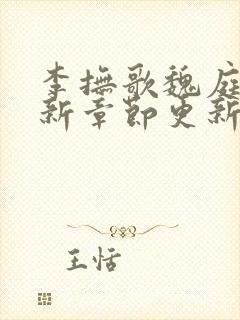 李撫歌魏庭
新章節更新
王恬